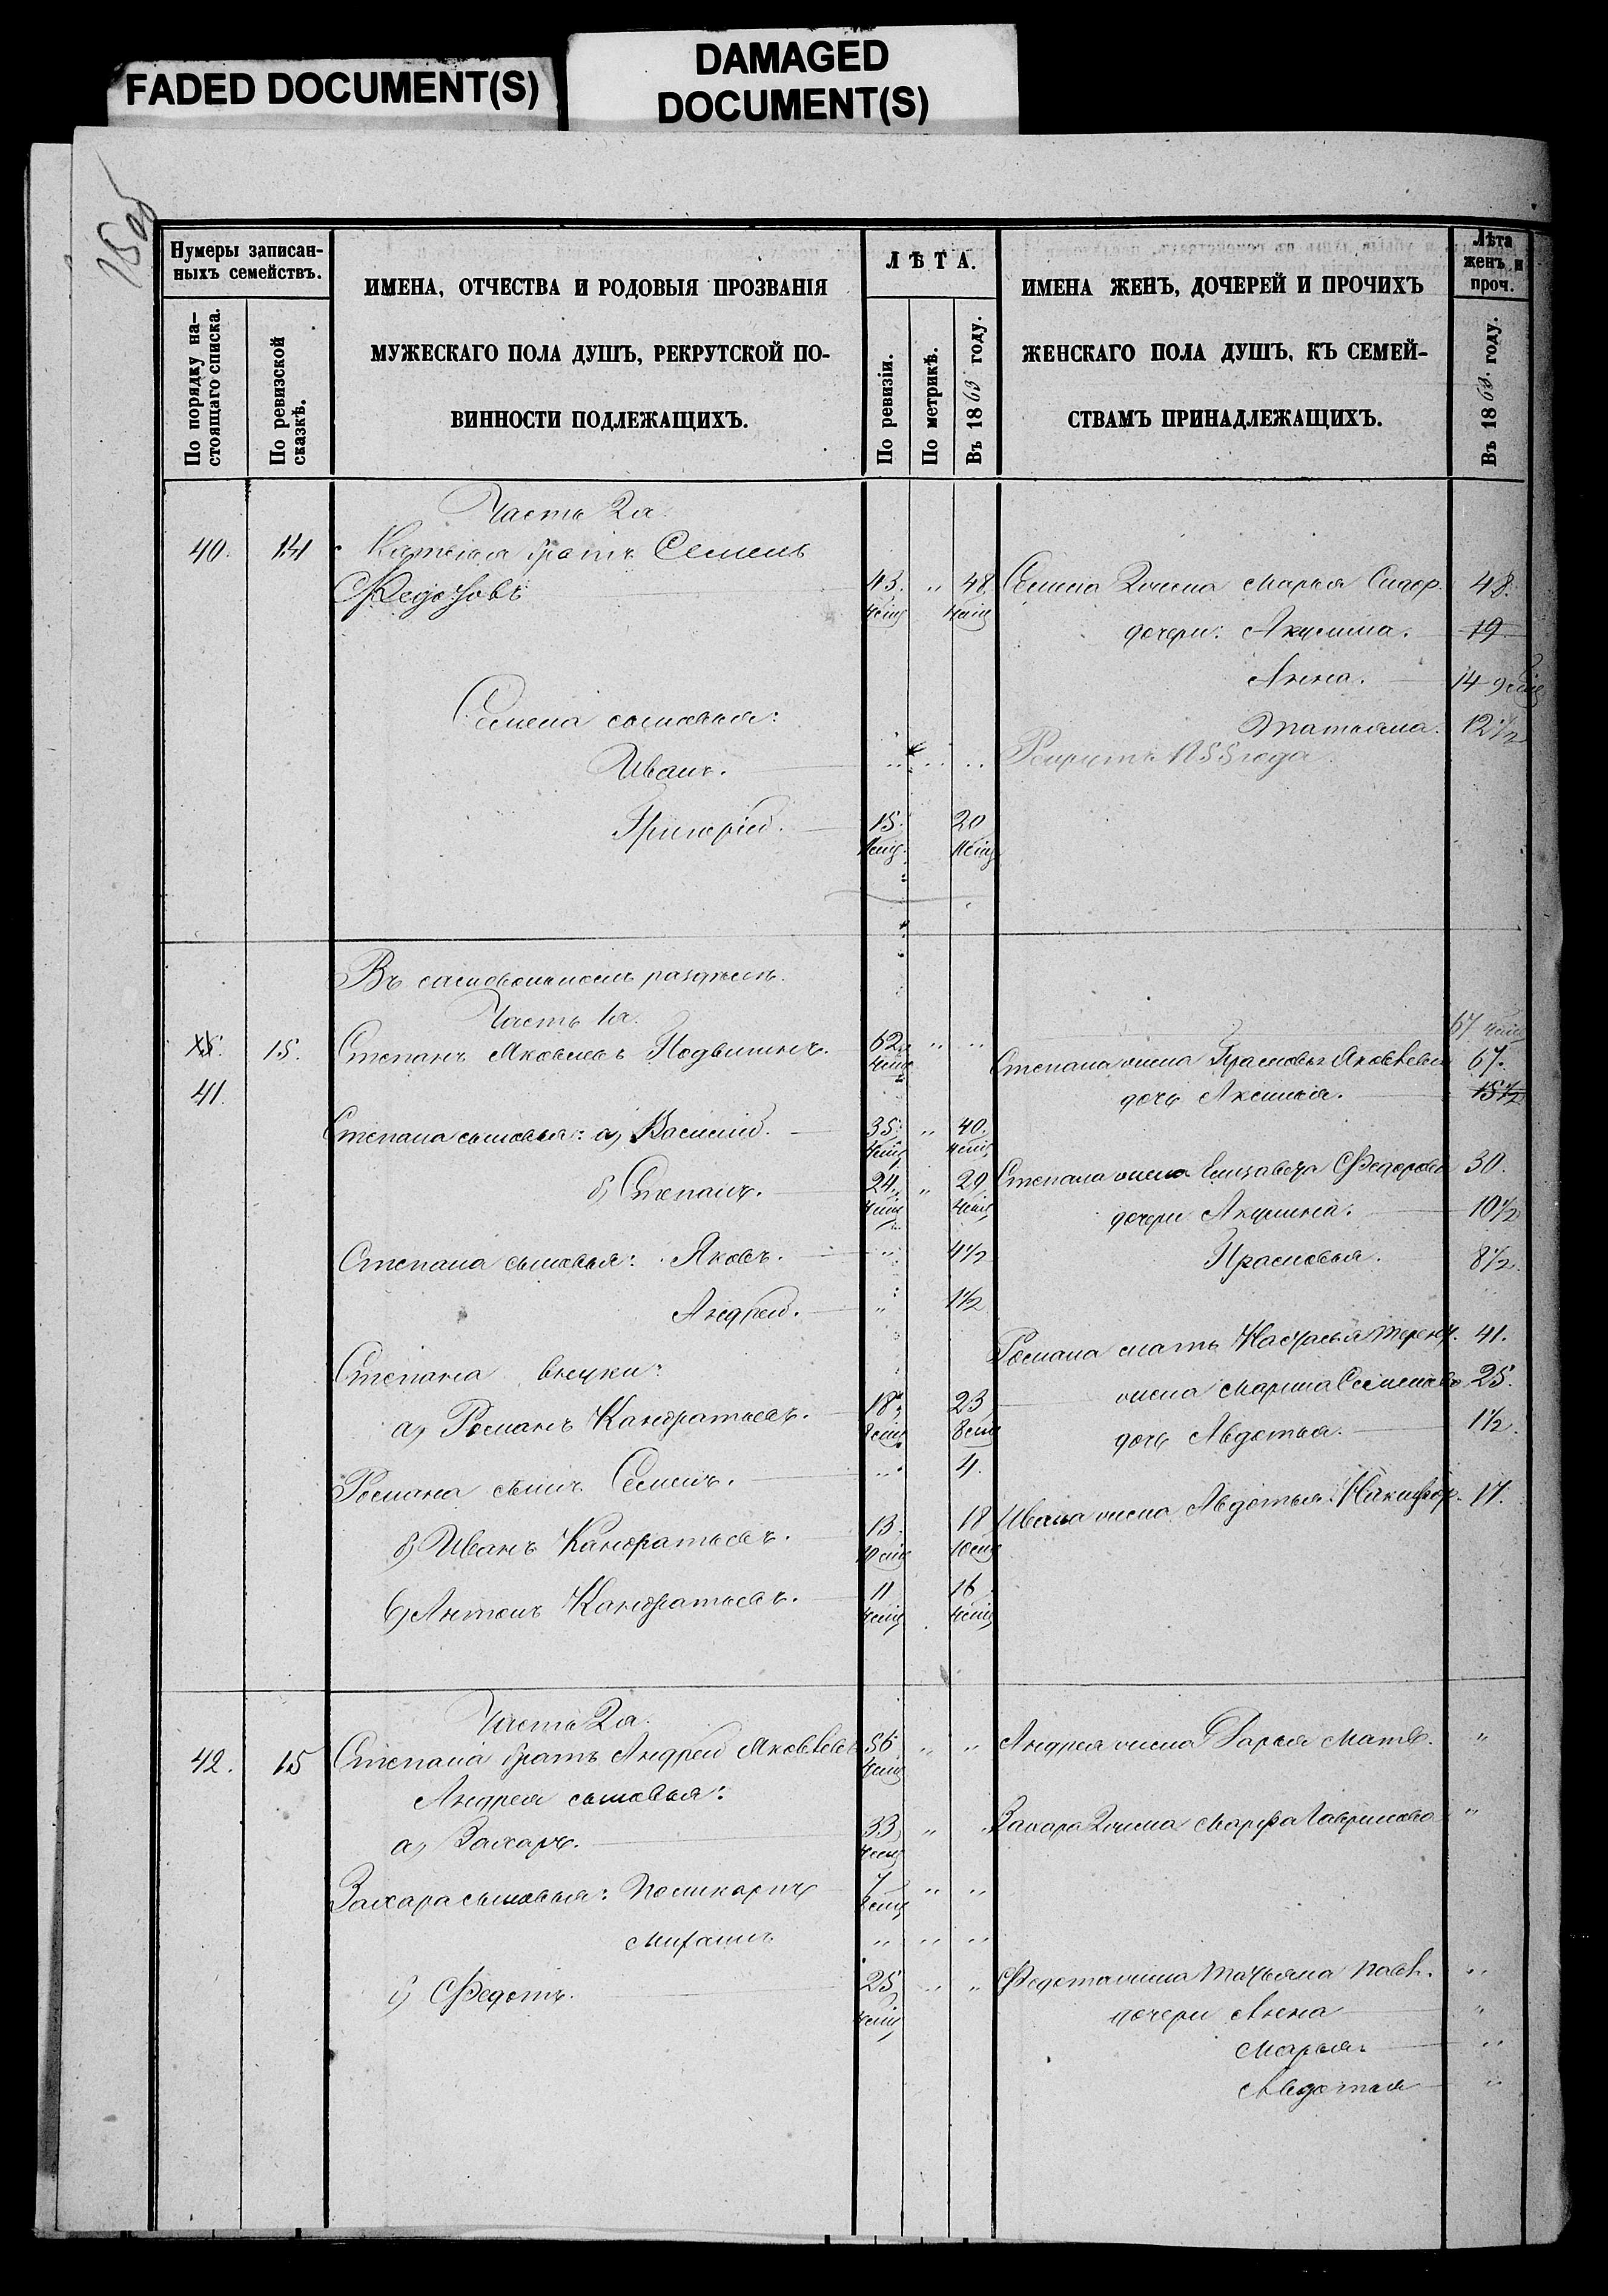 FADED DOCUMENT(S)
DAMAGED
DOCUMENT(S)
Нумеры записан-
ныхъ семействъ.
По порядку на-
стоящаго списка.
По ревизской
сказкѣ.
ИМЕНА, ОТЧЕСТВА И РОДОВЫЯ ПРОЗВАНІЯ
МУЖЕСКАГО ПОЛА ДУШЪ, РЕКРУТСКОЙ ПО-
ВИННОСТИ ПОДЛЕЖАЩИХЪ.
ЛѢТА.
По ревизіи.
По метрикѣ.
Въ 1863 году.
ИМЕНА ЖЕНЪ, ДОЧЕРЕЙ И ПРОЧИХЪ
ЖЕНСКАГО ПОЛА ДУШЪ, КЪ СЕМЕЙ-
СТВАМЪ ПРИНАДЛЕЖАЩИХЪ.
Лѣта
женъ и
проч.
Въ 1863 году.
Часть 2я.
40. 14 братъ Семенъ
Федотовъ 43. " 48. Семена 2 жена Марья Сидор. 48.
дочери: Акулина. 19
Анна. 14
Семена сыновья: Татьяна. 12 1/2
Иванъ. Рекрутъ 1855 года.
Григорій. 15. 20
Въ самовольномъ раздѣлѣ.
Часть 1я.
15. Степанъ Яковлевъ 62 " " Степана жена Прасковья Яковлева 67.
41. дочь Аксинья. 15 1/2
Степана сыновья: а) Василій. 35. " 40.
б) Степанъ. 24. " 29 Степана жена Елизавета Федорова 30.
дочери Акулина. 10 1/2
Степана сыновья: Яковъ. " 4 1/2 Прасковья. 8 1/2
Андрей. " 1 1/2
Романа мать Настасья Терент. 41.
Степана внуки: жена Марина Семенова 25.
а) Романъ Кандратьевъ. 18 23 дочь Авдотья. 1 1/2.
Романа сынъ Семенъ. " 4.
б) Иванъ Кандратьевъ. 13. 18 Ивана жена Авдотья Никифор. 17.
в) Антонъ Кандратьевъ. 11 16
Часть 2я.
42. 15 Степана братъ Андрей Яковлевъ 56 " " Андрея жена Дарья Матв. "
Андрея сыновья:
а) Захаръ. 33 " " Захара 2 жена Марфа Гаврилова "
Захара сыновья: Поликарпъ 7 " "
" " "
б) Федотъ. 25 " " Федота жена Татьяна Павл. "
дочери Анна "
Марья. "
Авдотья "